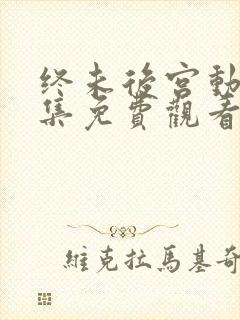 終末後宮動
集免費觀看
維克拉馬基奇